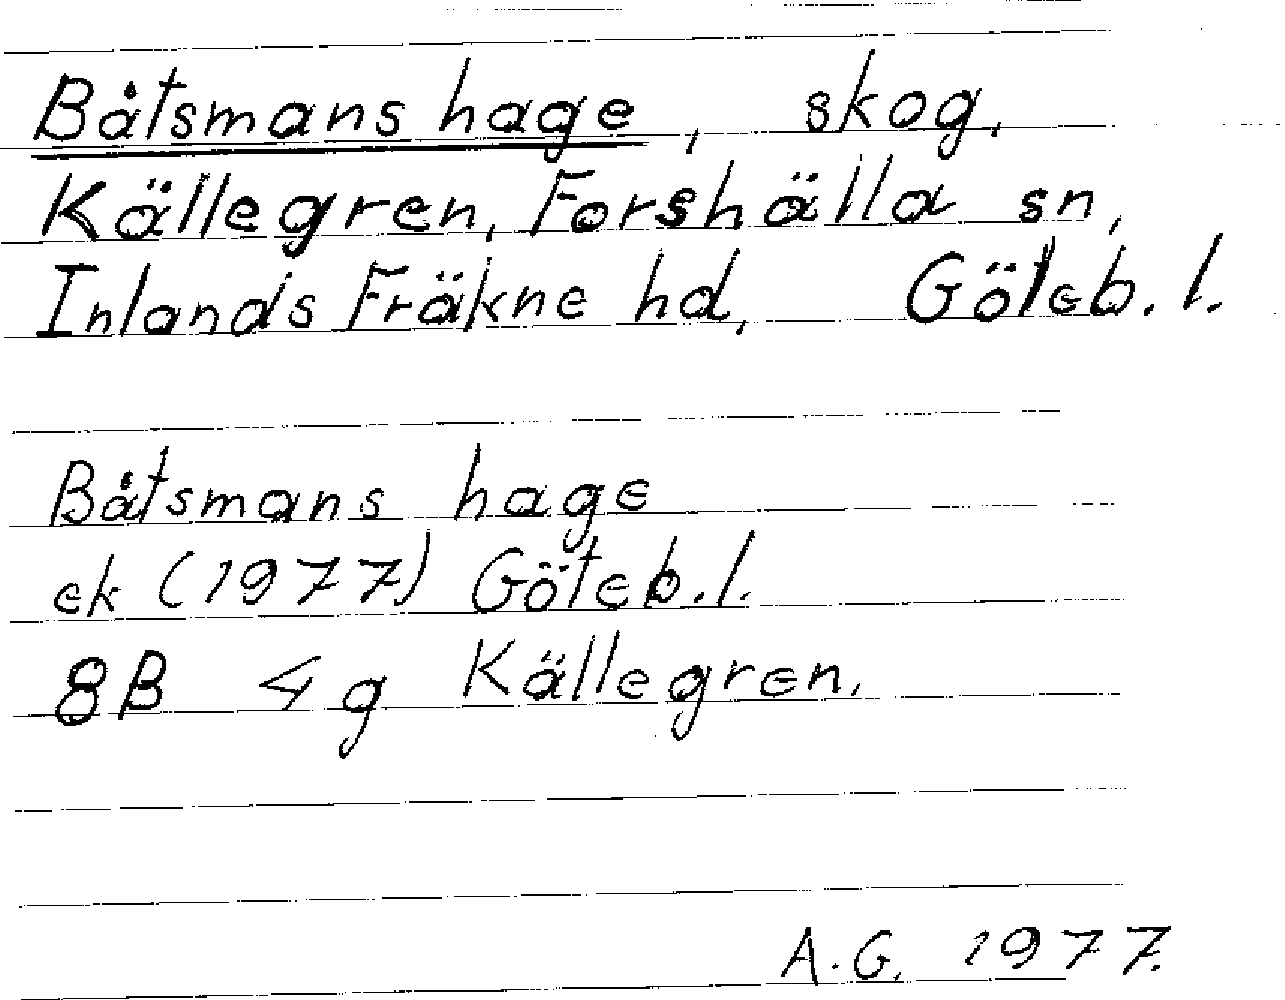 Båtsmans hage, skog,
Källegren, Forshälla sn,
Inlands Fräkne hd, Göteb. l.
Båtsmans hage
ek (1977) Göteb. l.
8B 4g Källegren.
A.G. 1977.